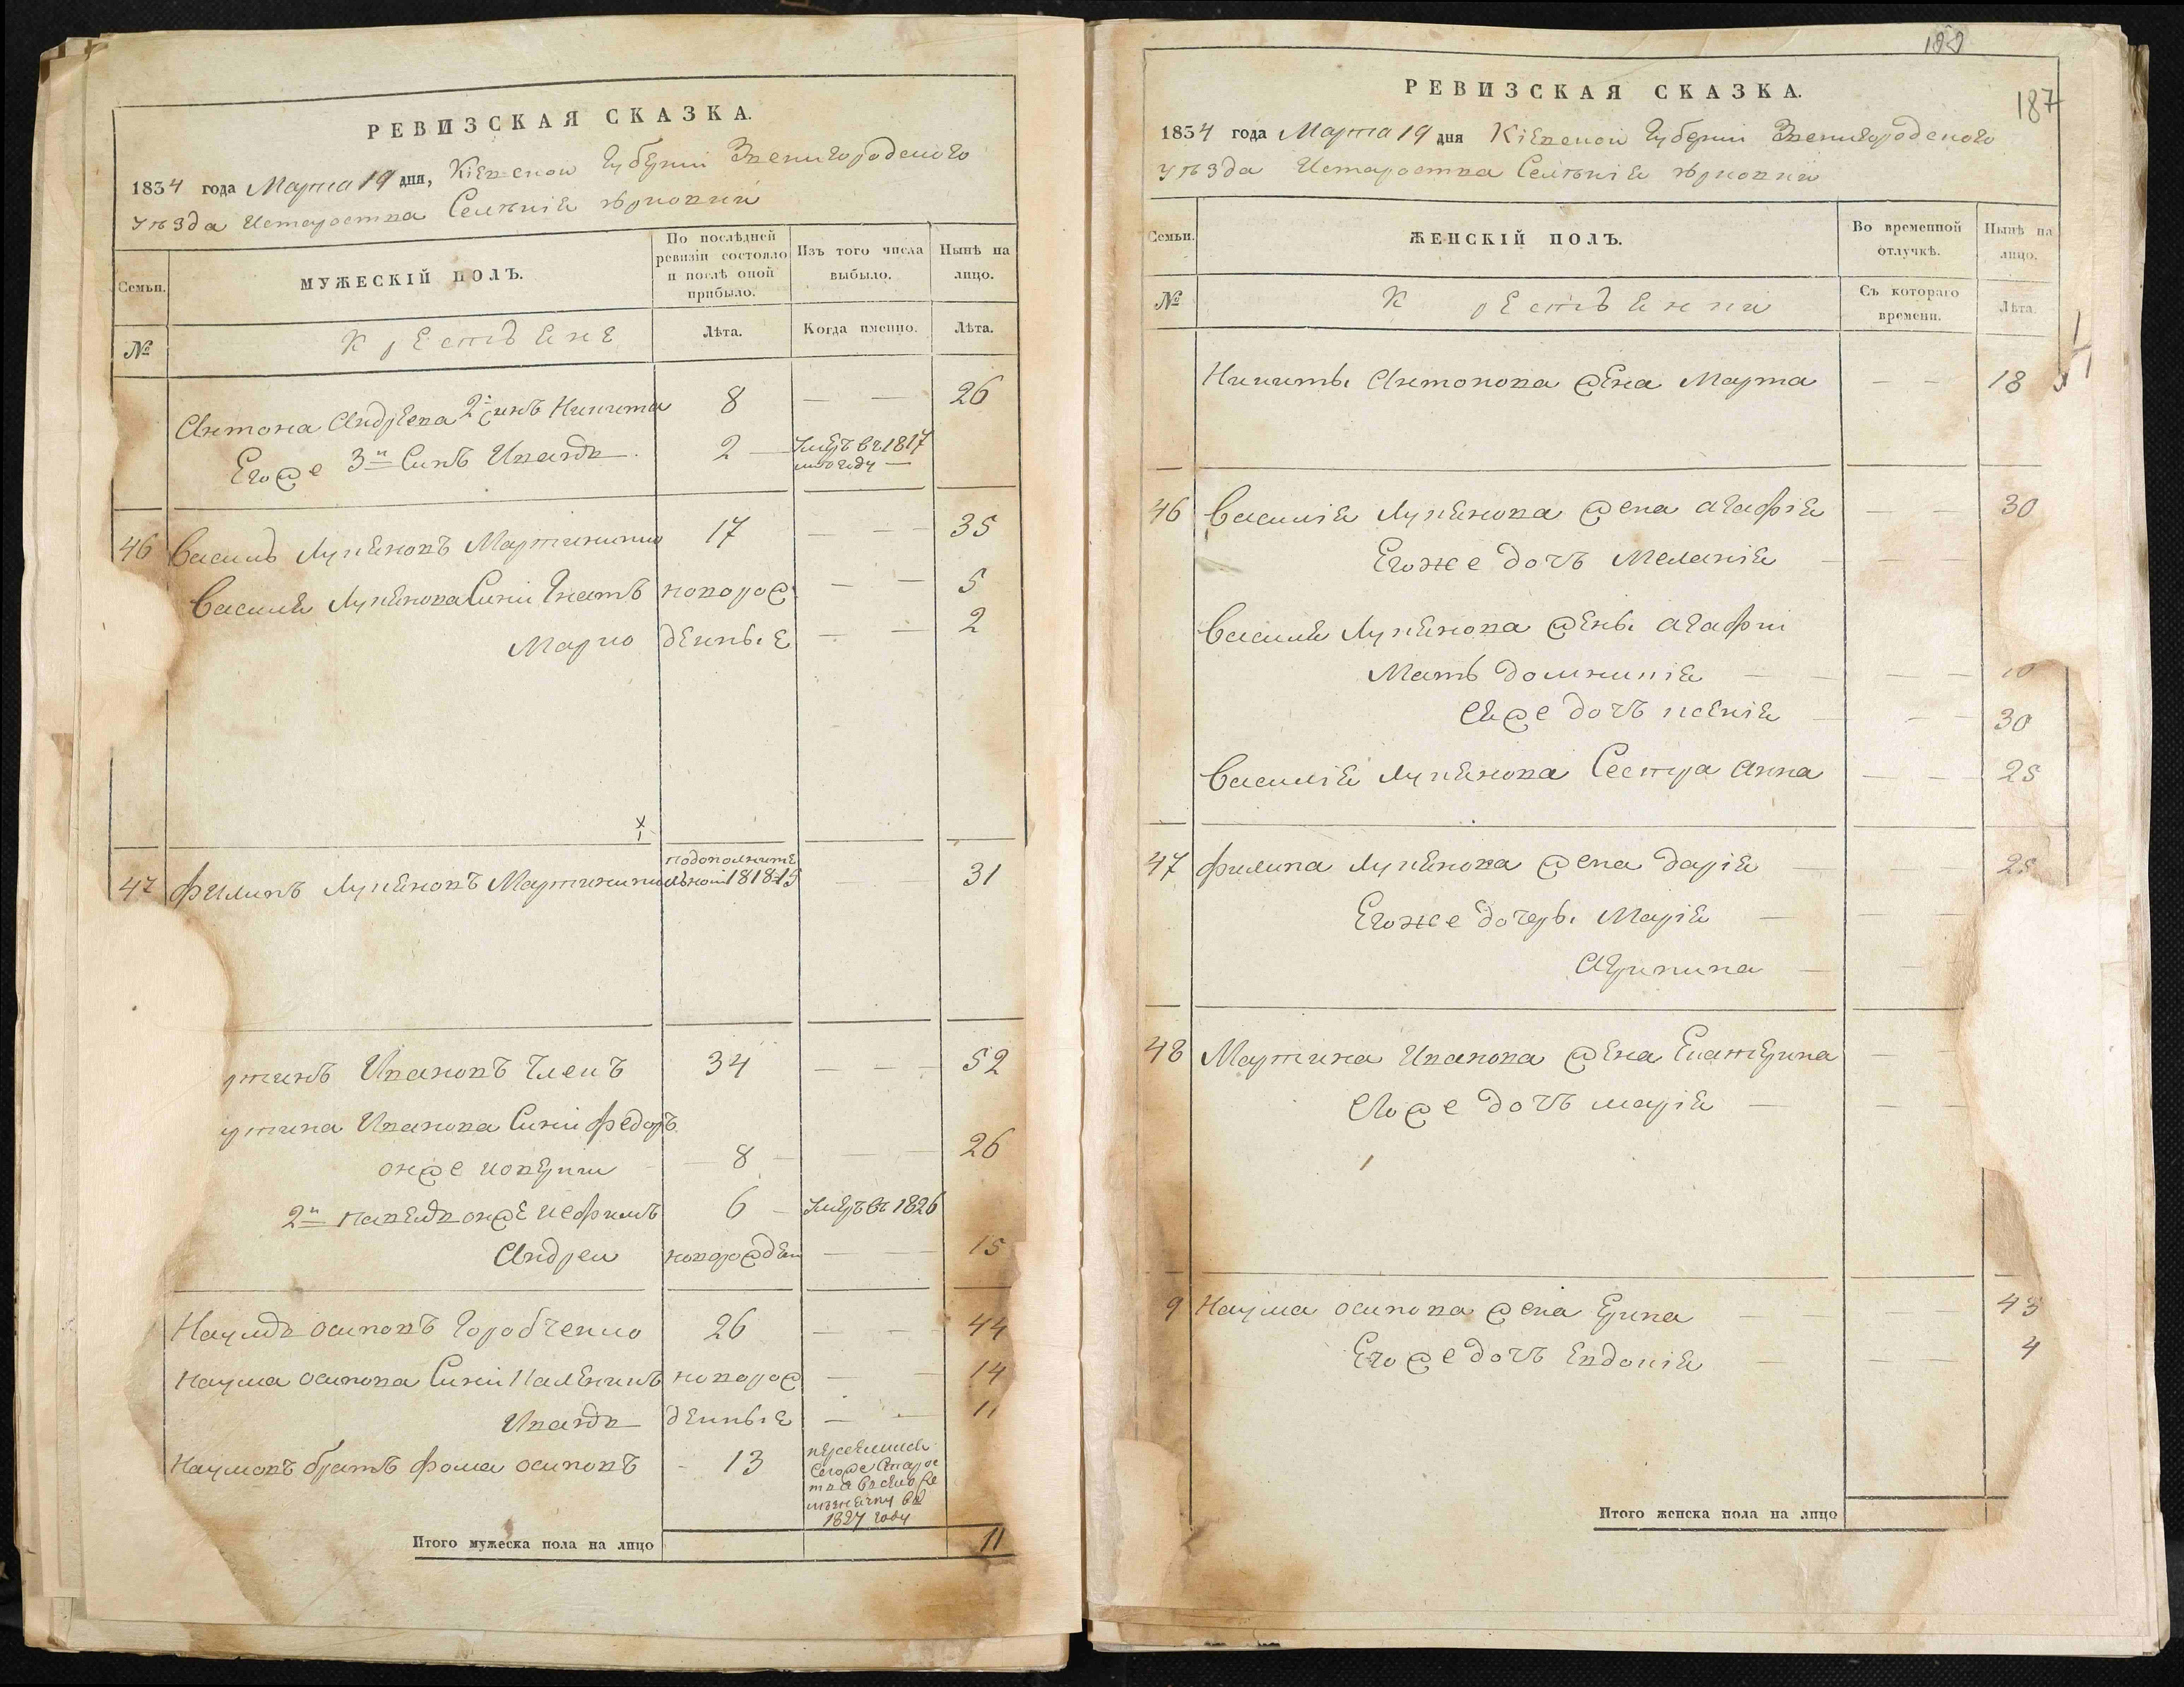 РЕВИЗСКАЯ СКАЗКА.
1834 года Марта 19 дня, Кіевской Губерніи Звенигородского
уѣзда Староства Селѣнія
Семьи.
МУЖЕСКІЙ ПОЛЪ.
По послѣдней ревизіи состояло и послѣ оной прибыло.
Изъ того числа выбыло.
Нынѣ на лицо.
№
Крестьяне
Лѣта.
Когда именно.
Лѣта.
Антона Андреева 2й синъ Никита 8 — — 26
Егоже 3й Синъ Иванъ 2 — Умеръ въ 1817
году —
46 Василь Лукяновъ Мартиншин 17 — — 35
Василя Лукянова Сини Игнатъ новорож — — 5
Марко денные — — 2
х
47 Филипъ Лукяновъ подополните
льной 1818 15 — — 31
ртинъ Ивановъ 34 — — — 52
ртина Иванова Сини Федоръ
онже 8 — — 26
2й онже Иефимъ 6 — Умеръ въ 1826
Андрей новорожден — — 15
Наумъ Осиповъ Горобченко 26 — — 44
Наума Осипова Сини новорож — — 14
Иванъ денные — — 11
Наумовъ братъ Фома Осиповъ 13
1827 году
Итого мужеска пола на лицо 11
187
РЕВИЗСКАЯ СКАЗКА.
1834 года Марта 19 дня Кіевской Губерніи Звенигородского
уѣзда Староства Селѣнія
Семьи.
ЖЕНСКІЙ ПОЛЪ.
Во временной отлучкѣ.
Нынѣ на лицо.
№
Крестьянки
Съ котораго времени.
Лѣта.
Никиты Антонова жена Марта — — 18
46 Василія Лукянова жена Агафія — — 30
Егоже дочь Меланія — — —
Василя Лукянова жены Агафіи
Мать Домникія — — —
Еяже дочь Ксенія — — 30
Василія Лукянова Сестра Анна — — 25
47 Филипа Лукянова жена Дарія — — 25
Егоже дочеры Марія —
Агрипина —
48 Мартина Иванова жена Екатерина — —
Егоже дочь Марія — — —
9 Наума Осипова жена Ирина — — 43
Егоже дочь Евдокія — — 4
Итого женска пола на лицо